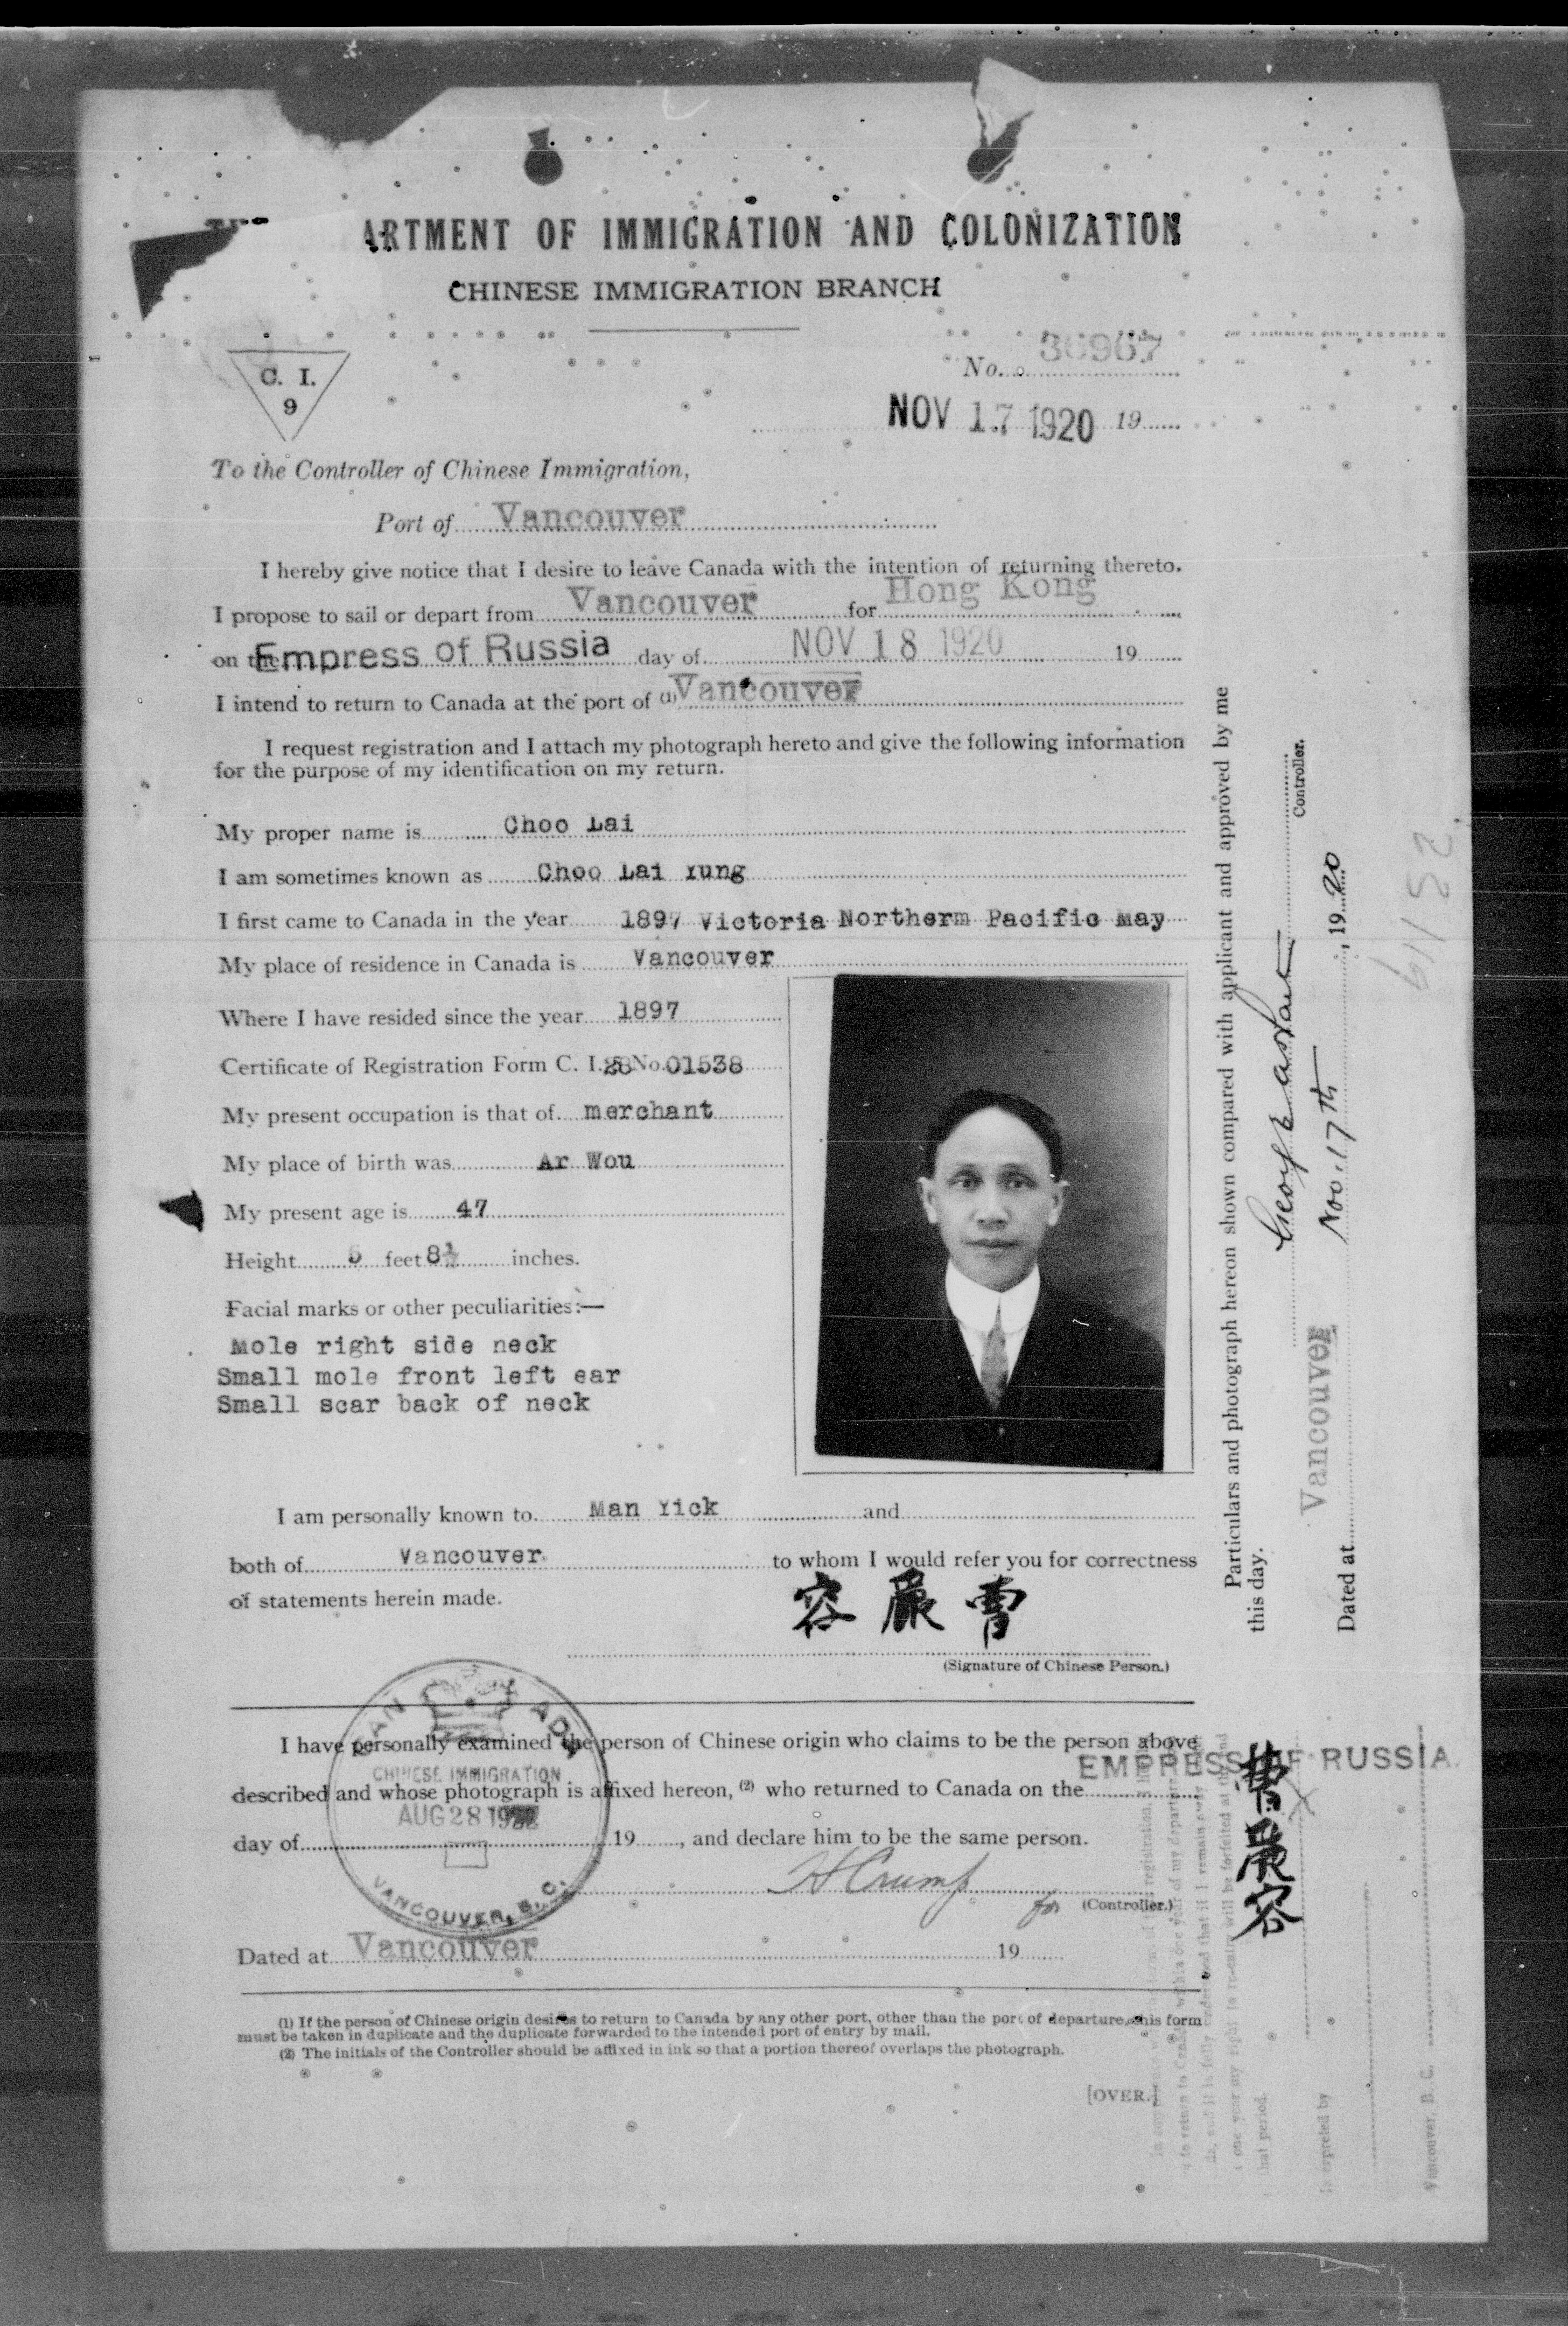 ARTMENT OF IMMIGRATION AND COLONIZATION
CHINESE IMMIGRATION BRANCH
C. I.
9
No. 36967
NOV 17 1920 19
To the Controller of Chinese Immigration,
Port of Vancouver
I hereby give notice that I desire to leave Canada with the intention of returning thereto.
I propose to sail or depart from Vancouver for Hong Kong
on the Empress of Russia day of NOV 18 1920 19
I intend to return to Canada at the port of (1) Vancouver
I request registration and I attach my photograph hereto and give the following information
for the purpose of my identification on my return.
My proper name is Choo Lai
I am sometimes known as Choo Lai Yung
I first came to Canada in the year 1897 Victoria Northerm Pacific May
My place of residence in Canada is Vancouver
Where I have resided since the year 1897
Certificate of Registration Form C. I. 28 No. 01538
My present occupation is that of merchant
My place of birth was Ar Wou
My present age is 47
Height 5 feet 8½ inches.
Facial marks or other peculiarities:—
Mole right side neck
Small mole front left ear
Small scar back of neck
I am personally known to Man Yick and
both of Vancouver to whom I would refer you for correctness
of statements herein made.
容嚴曹
(Signature of Chinese Person.)
I have personally examined the person of Chinese origin who claims to be the person above
described and whose photograph is affixed hereon, (2) who returned to Canada on the
EMPRESS OF RUSSIA
day of 19 , and declare him to be the same person.
CHINESE IMMIGRATION
AUG 28
VANCOUVER, B. C.
H Crump
for (Controller.)
Dated at Vancouver 19
(1) If the person of Chinese origin desires to return to Canada by any other port, other than the port of departure, this form
must be taken in duplicate and the duplicate forwarded to the intended port of entry by mail.
(2) The initials of the Controller should be affixed in ink so that a portion thereof overlaps the photograph.
[OVER.]
Particulars and photograph hereon shown compared with applicant and approved by me
this day.
Controller.
Dated at Vancouver Nov. 17th, 1920
曹嚴容
Vancouver, B. C.